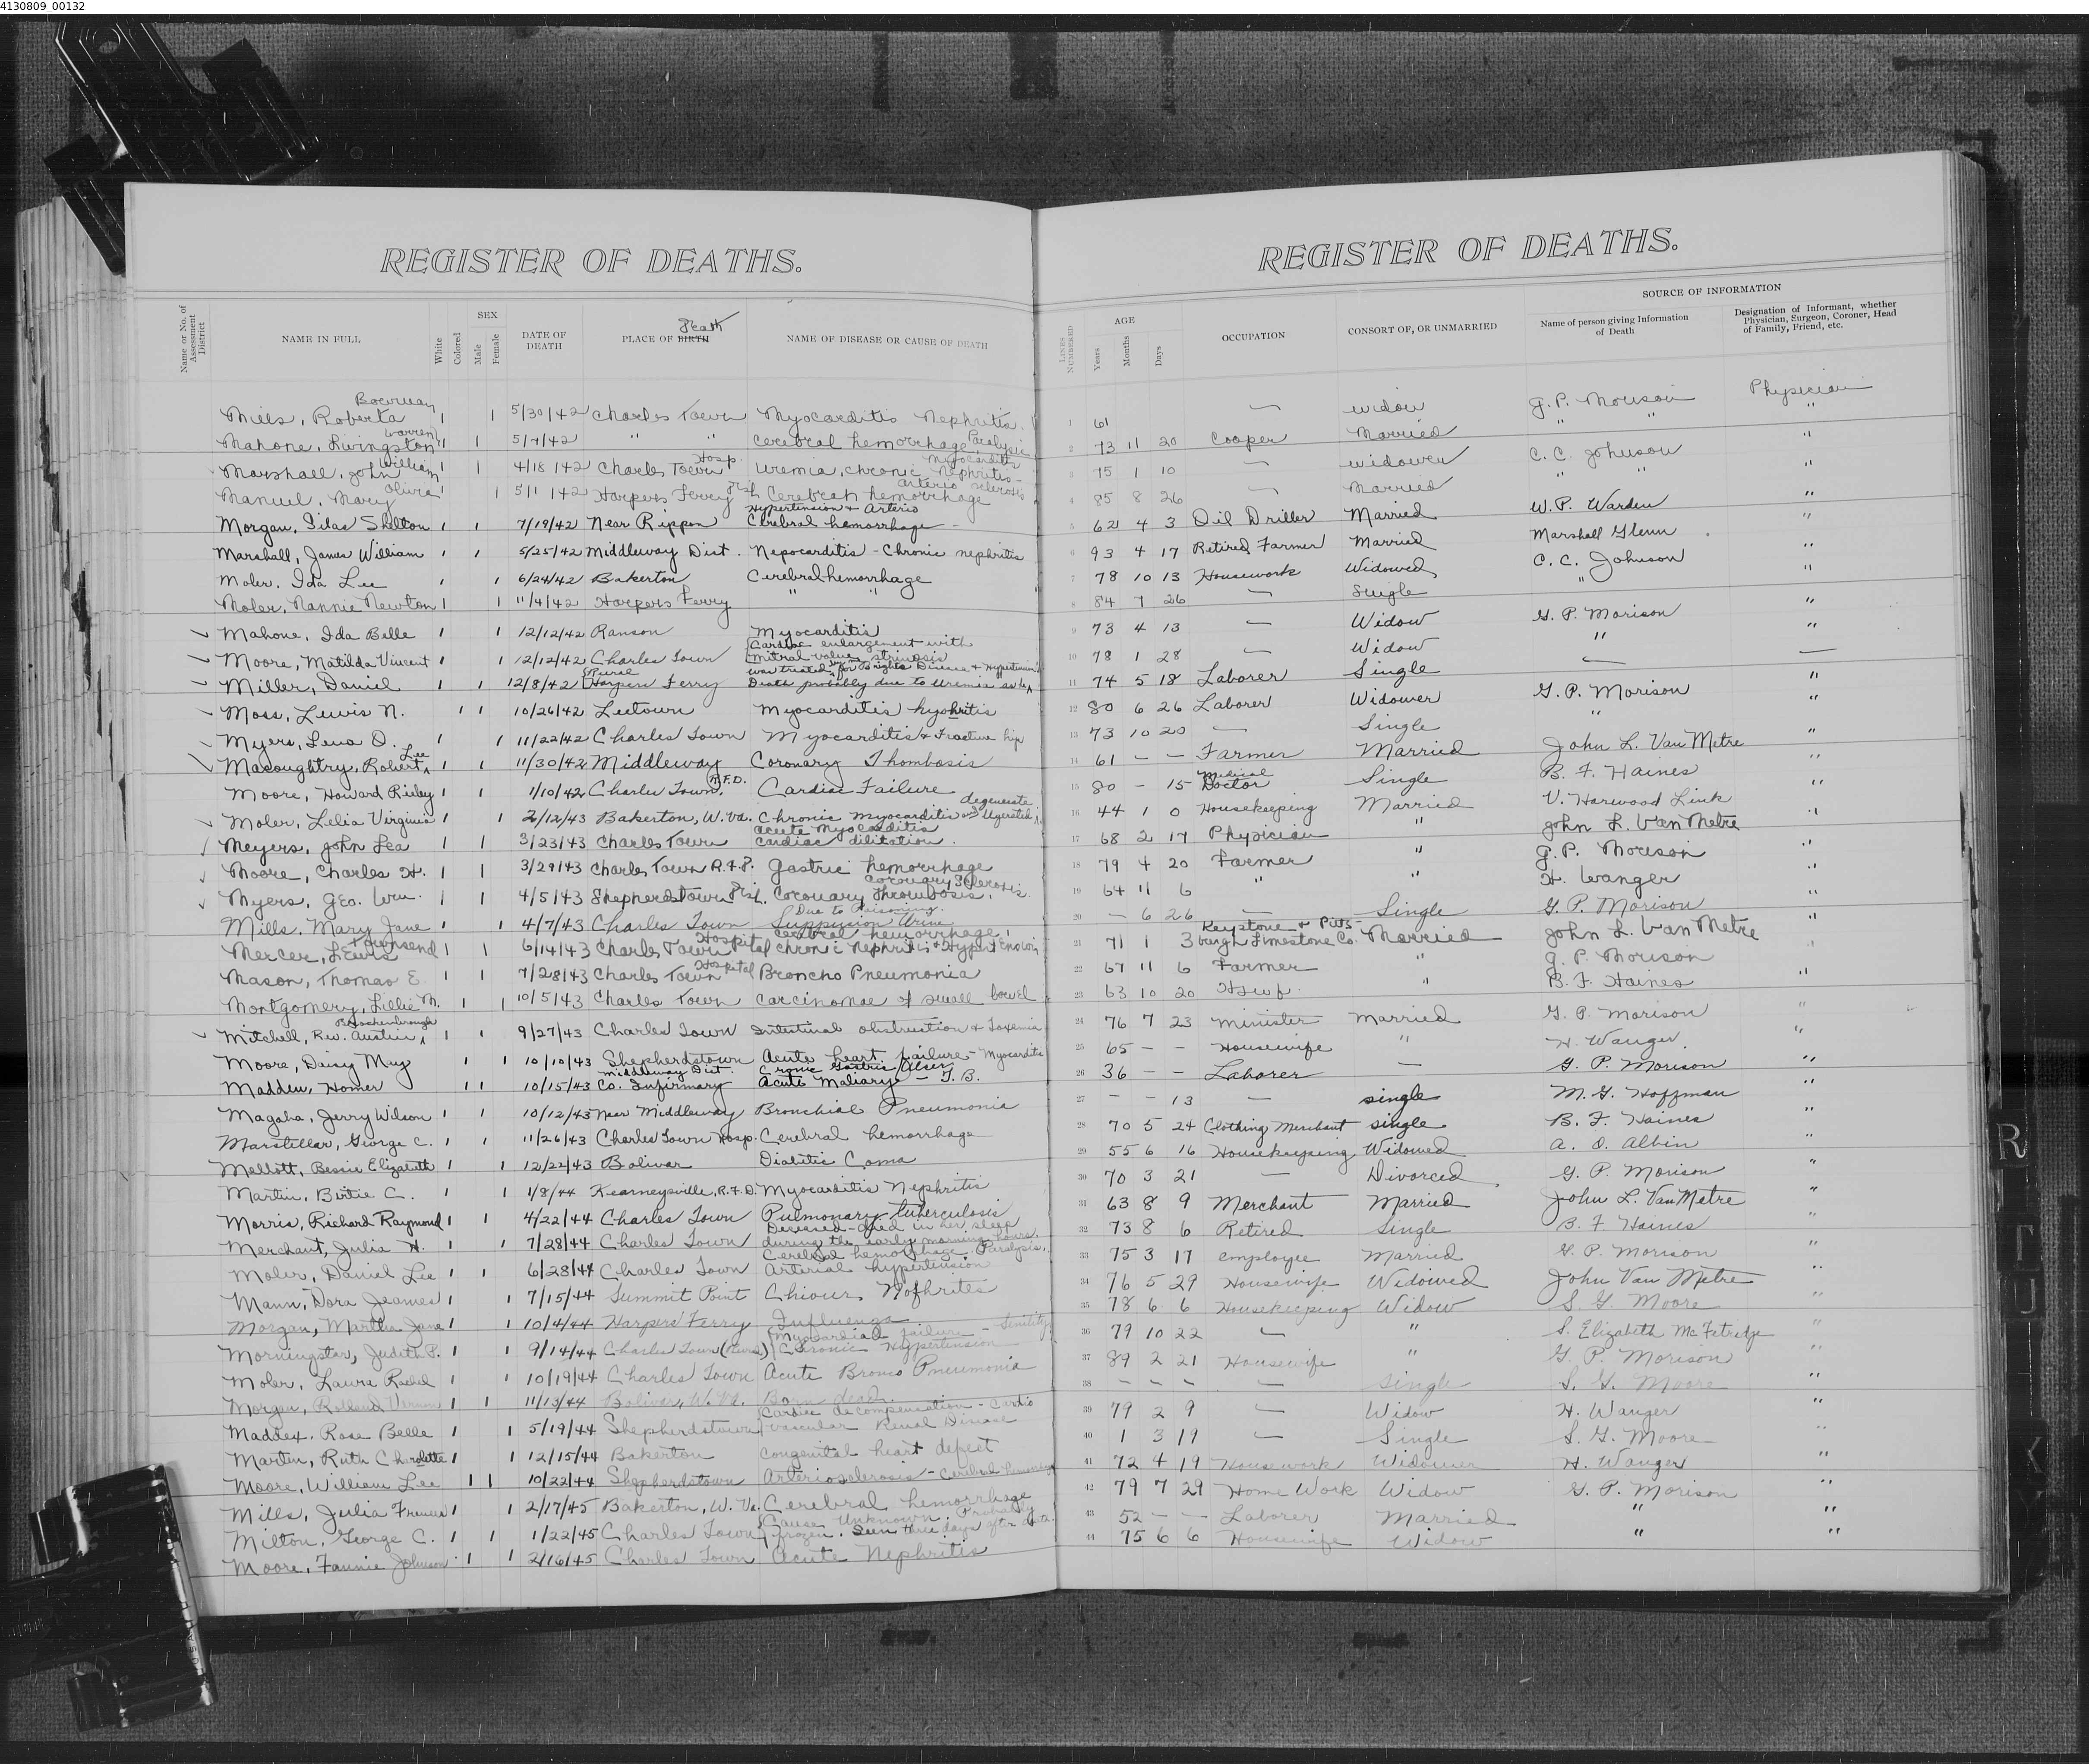 4130809_00132
REGISTER OF DEATHS.
Name or No. of Assessment District
NAME IN FULL
White
Colored
SEX
Male
Female
DATE OF DEATH
Death
PLACE OF BIRTH
NAME OF DISEASE OR CAUSE OF DEATH
Mills, Roberta 1 1 5/30/42 Charles Town Myocarditis Nephritis
Mahone, Livingston Warren 1 1 5/7/42 " " Cerebral hemorrhage Paralysis
Marshall, John William 1 1 4/18/42 Charles Town Hosp. Uremia, chronic nephritis - Myocarditis
Manuel, Mary Olivia 1 1 5/1/42 Harpers Ferry Dist Cerebral hemorrhage arterio sclerosis
Morgan, Silas Shelton 1 1 7/19/42 Near Rippon Hypertension & Arterio Cerebral hemorrhage -
Marshall, James William 1 1 5/25/42 Middleway Dist. Nepocarditis - Chronic nephritis
Moler, Ida Lee 1 1 6/24/42 Bakerton Cerebral hemorrhage
Moler, Nannie Newton 1 1 11/4/42 Harpers Ferry " "
Mahone, Ida Belle 1 1 12/12/42 Ranson Myocarditis
Moore, Matilda Vincent 1 1 12/12/42 Charles Town Cardiac enlargement with mitral valve stenosis
Miller, Daniel 1 1 12/8/42 Rural Harpers Ferry was treated for Brights Disease & Hypertension Death probably due to Uremia
Moss, Lewis N. 1 1 10/26/42 Leetown Myocarditis
Myers, Lena O. 1 1 11/22/42 Charles Town Myocarditis & Fracture hip
Macoughtry, Robert Lee 1 1 11/30/42 Middleway Coronary Thombosis
Moore, Howard Rieley 1 1 1/10/42 Charles Town, R.F.D. Cardiac Failure
Moler, Lelia Virginia 1 1 2/12/43 Bakerton, W. Va. Chronic myocarditis degenerate
Meyers, John Lea 1 1 3/23/43 Charles Town acute Myocarditis cardiac dilitation.
Moore, Charles H. 1 1 3/29/43 Charles Town R.F.D. Gastric hemorrhage
Myers, Geo. Wm. 1 1 4/5/43 Shepherdstown Dist. Coronary Sclerosis Coronary thrombosis.
Mills, Mary Jane 1 1 4/7/43 Charles Town Due to Poisoning. Suppression Urine
Mercer, Lewis Townsend 1 1 6/14/43 Charles Town Hospital cerebral hemorrhage, chronic Nephritis & Hypertension
Mason, Thomas E. 1 1 7/28/43 Charles Town Hospital Broncho Pneumonia
Montgomery, Lillie M. 1 1 10/5/43 Charles Town Carcinomae of small bowel
Mitchell, Rev. Austin 1 1 9/27/43 Charles Town Intestinal obstruction & Toxemia
Moore, Daisy May 1 1 10/10/43 Shepherdstown Acute heart failure - Myocarditis
Madden, Homer 1 1 10/15/43 Middleway Dist. Co. Infirmary Cronic Gastric Ulser Acute Maliary - T.B.
Magaha, Jerry Wilson 1 1 10/12/43 Near Middleway Bronchial Pneumonia
Marstellar, George C. 1 1 11/26/43 Charles Town Hosp. Cerebral hemorrhage
Mellott, Bessie Elizabeth 1 1 12/22/43 Bolivar Diabetic Coma
Martin, Birtie C. 1 1 1/8/44 Kearneysville, R.F.D. Myocarditis Nephritis
Morris, Richard Raymond 1 1 4/22/44 Charles Town Pulmonary tuberculosis
Merchant, Julia H. 1 1 7/28/44 Charles Town Deceased - died in her sleep during the early morning hours.
Moler, Daniel Lee 1 1 6/28/44 Charles Town Cerebral hemorrhage. Paralysis. Arterial hypertension
Mann, Dora Jeames 1 1 7/15/44 Summit Point Chronic Nofhrites
Morgan, Martha Jane 1 1 10/4/44 Harpers Ferry Influenza
Morningstar, Judith P. 1 1 9/14/44 Charles Town (Rural) Myocardial failure - Senility Chronic Hypertension
Moler, Laura Rachel 1 10/19/44 Charles Town Acute Bronco Pneumonia
Morgan, Rolland Vernon 1 1 11/13/44 Bolivar, W. Va. Born dead.
Maddex, Rose Belle 1 1 5/19/44 Shepherdstown Cardiac decompensation - Cardio vascular Renal Disease
Martin, Ruth Charolotte 1 1 12/15/44 Bakerton Congenital heart defect
Moore, William Lee 1 1 10/22/44 Shepherdstown Arteriosclerosis - Cerebral hemorrhage
Mills, Julia Frances 1 1 2/17/45 Bakerton, W. Va. Cerebral hemorrhage
Milton, George C. 1 1 1/22/45 Charles Town Cause Unknown. Probably frozen. Seen three days after date.
Moore, Fannie Johnson 1 1 2/16/45 Charles Town Acute Nephritis
REGISTER OF DEATHS.
LINES NUMBERED
AGE
Years
Months
Days
OCCUPATION
CONSORT OF, OR UNMARRIED
SOURCE OF INFORMATION
Name of person giving Information of Death
Designation of Informant, whether Physician, Surgeon, Coroner, Head of Family, Friend, etc.
1 61 — widow G. P. Morison Physician
2 73 11 20 Cooper Married " "
3 75 1 10 — widower C. C. Johnson "
4 85 8 26 — Married " " "
5 62 4 3 Oil Driller Married W. P. Warden "
6 93 4 17 Retired Farmer Married Marshall Glenn "
7 78 10 13 Housework Widowed C. C. Johnson "
8 84 7 26 — Single " "
9 73 4 13 — Widow G. P. Morison "
10 78 1 28 — Widow " "
11 74 5 18 Laborer Single — —
12 80 6 26 Laborer Widower G. P. Morison "
13 73 10 20 — Single " "
14 61 — — Farmer Married John L. Van Metre "
15 80 - 15 Medical Doctor Single B. F. Haines "
16 44 1 0 Housekeeping Married V. Harwood Link "
17 68 2 17 Physician " John L. Van Metre "
18 79 4 20 Farmer " G. P. Morison "
19 64 11 6 " " H. Wanger "
20 — 6 26 — Single G. P. Morison "
21 71 1 3 Keystone & Pittsburgh Limestone Co. Married John L. Van Metre "
22 67 11 6 Farmer " G. P. Morison "
23 63 10 20 Hswf. " B. F. Haines "
24 76 7 23 Minister Married G. P. Morison "
25 65 — — Housewife " H. Wanger. "
26 36 — — Laborer — G. P. Morison "
27 — — 13 — single M. G. Hoffman "
28 70 5 24 Clothing Merchant single B. F. Haines "
29 55 6 16 Housekeeping Widowed A. O. Albin "
30 70 3 21 — Divorced G. P. Morison "
31 63 8 9 Merchant Married John L. Van Metre "
32 73 8 6 Retired Single B. F. Haines "
33 75 3 17 employee Married G. P. Morison "
34 76 5 29 Housewife Widowed John Van Metre "
35 78 6 6 Housekeeping Widow S. G. Moore "
36 79 10 22 — " S. Elizabeth McFetridge "
37 89 2 21 Housewife " G. P. Morison "
38 — — — — Single S. G. Moore "
39 79 2 9 — Widow H. Wanger "
40 1 3 19 — Single S. G. Moore "
41 72 4 19 Housework Widower H. Wanger "
42 79 7 29 Home Work Widow G. P. Morison "
43 52 — — Laborer Married " "
44 75 6 6 Housewife Widow " "